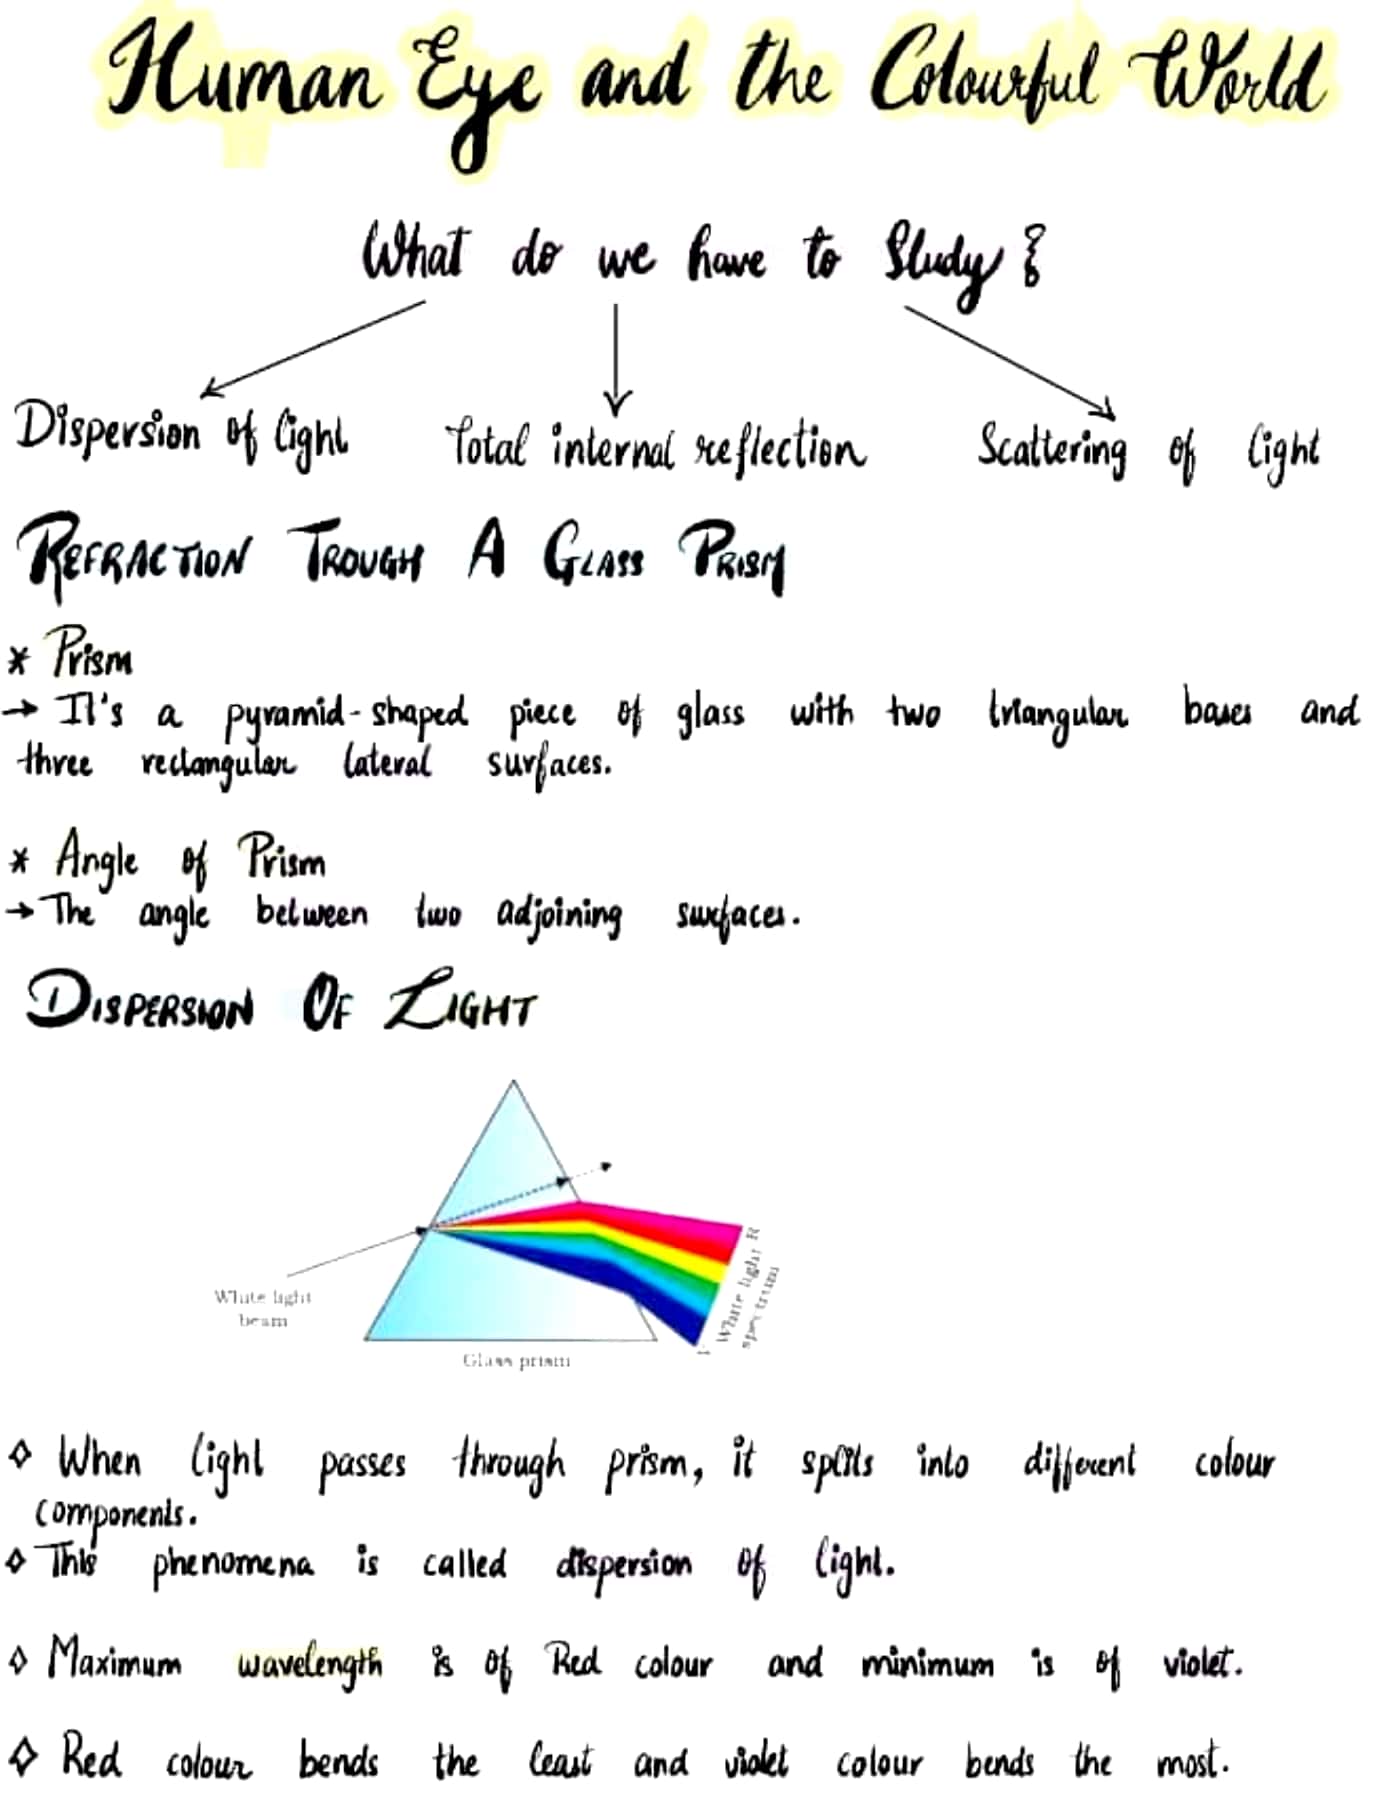 Human Eye and the Colourful World
What do we have to Study?
Dispersion of light Total internal reflection Scattering of light
REFRACTION TROUGH A GLASS PRISM
* Prism
→ It's a pyramid-shaped piece of glass with two triangular bases and
three rectangular lateral surfaces.
* Angle of Prism
→ The angle between two adjoining surfaces.
DISPERSION OF LIGHT
White light
beam
Glass prism
R
White light
spectrum
◇ When light passes through prism, it splits into different colour
components.
◇ This phenomena is called dispersion of light.
◇ Maximum wavelength is of Red colour and minimum is of violet.
◇ Red colour bends the least and violet colour bends the most.